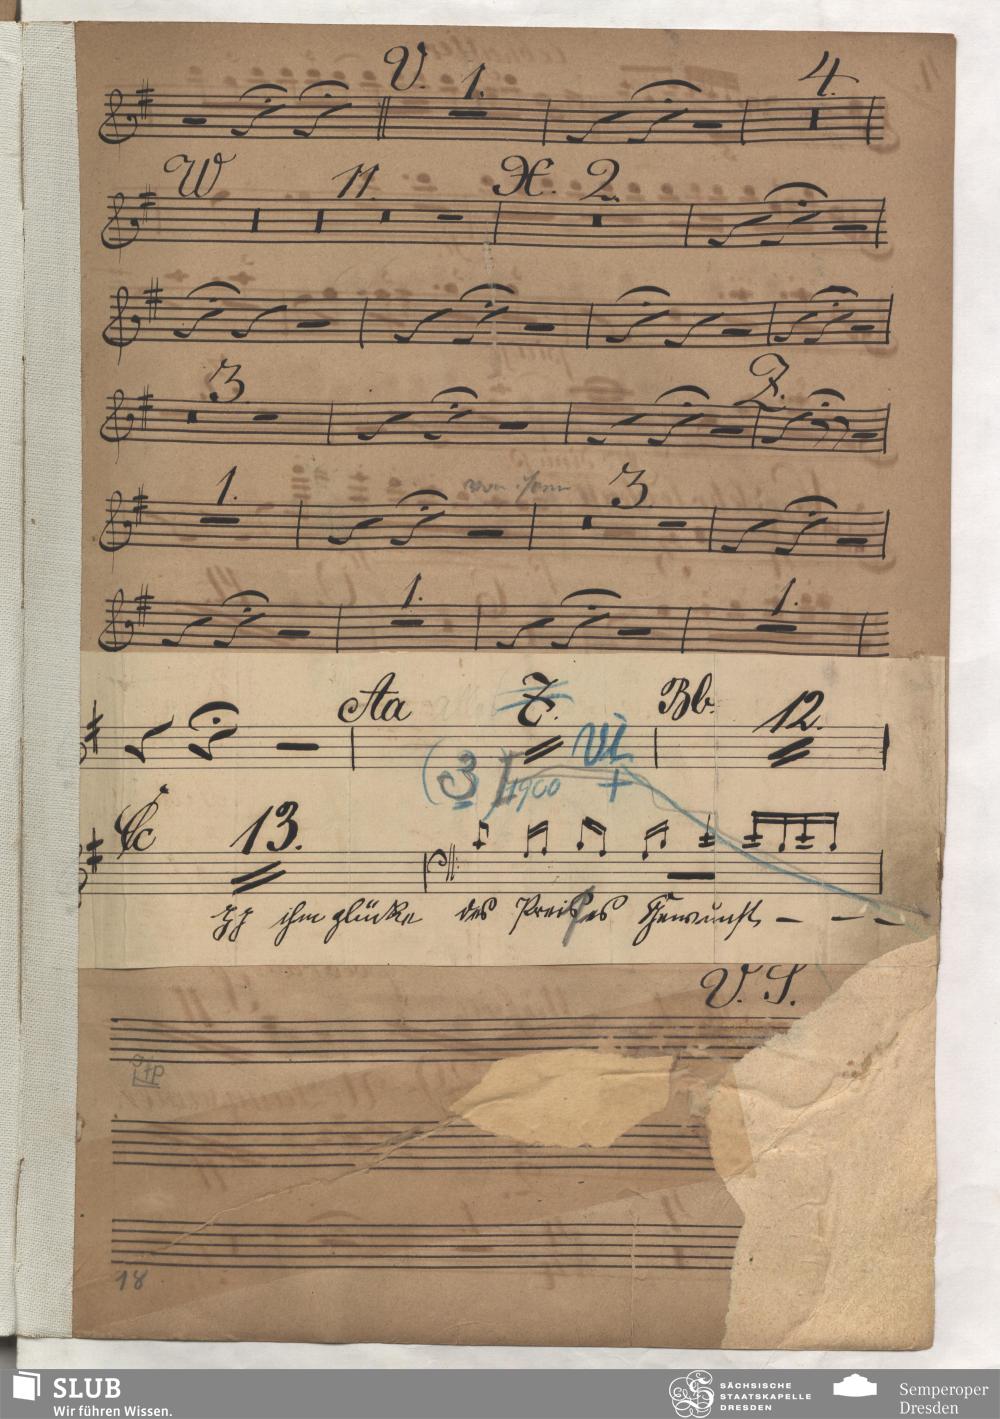 V. 1. 4.
W 11. X. 2.
3 Z.
1. 3.
1. 1.
Aa 7. Bb. 12.
(3) 1900
Cc 13.
ihm glücke des Preises Gewinnst - - -
V. S.
18
SLUB
Wir führen Wissen.
SÄCHSISCHE
STAATSKAPELLE
DRESDEN
Semperoper
Dresden